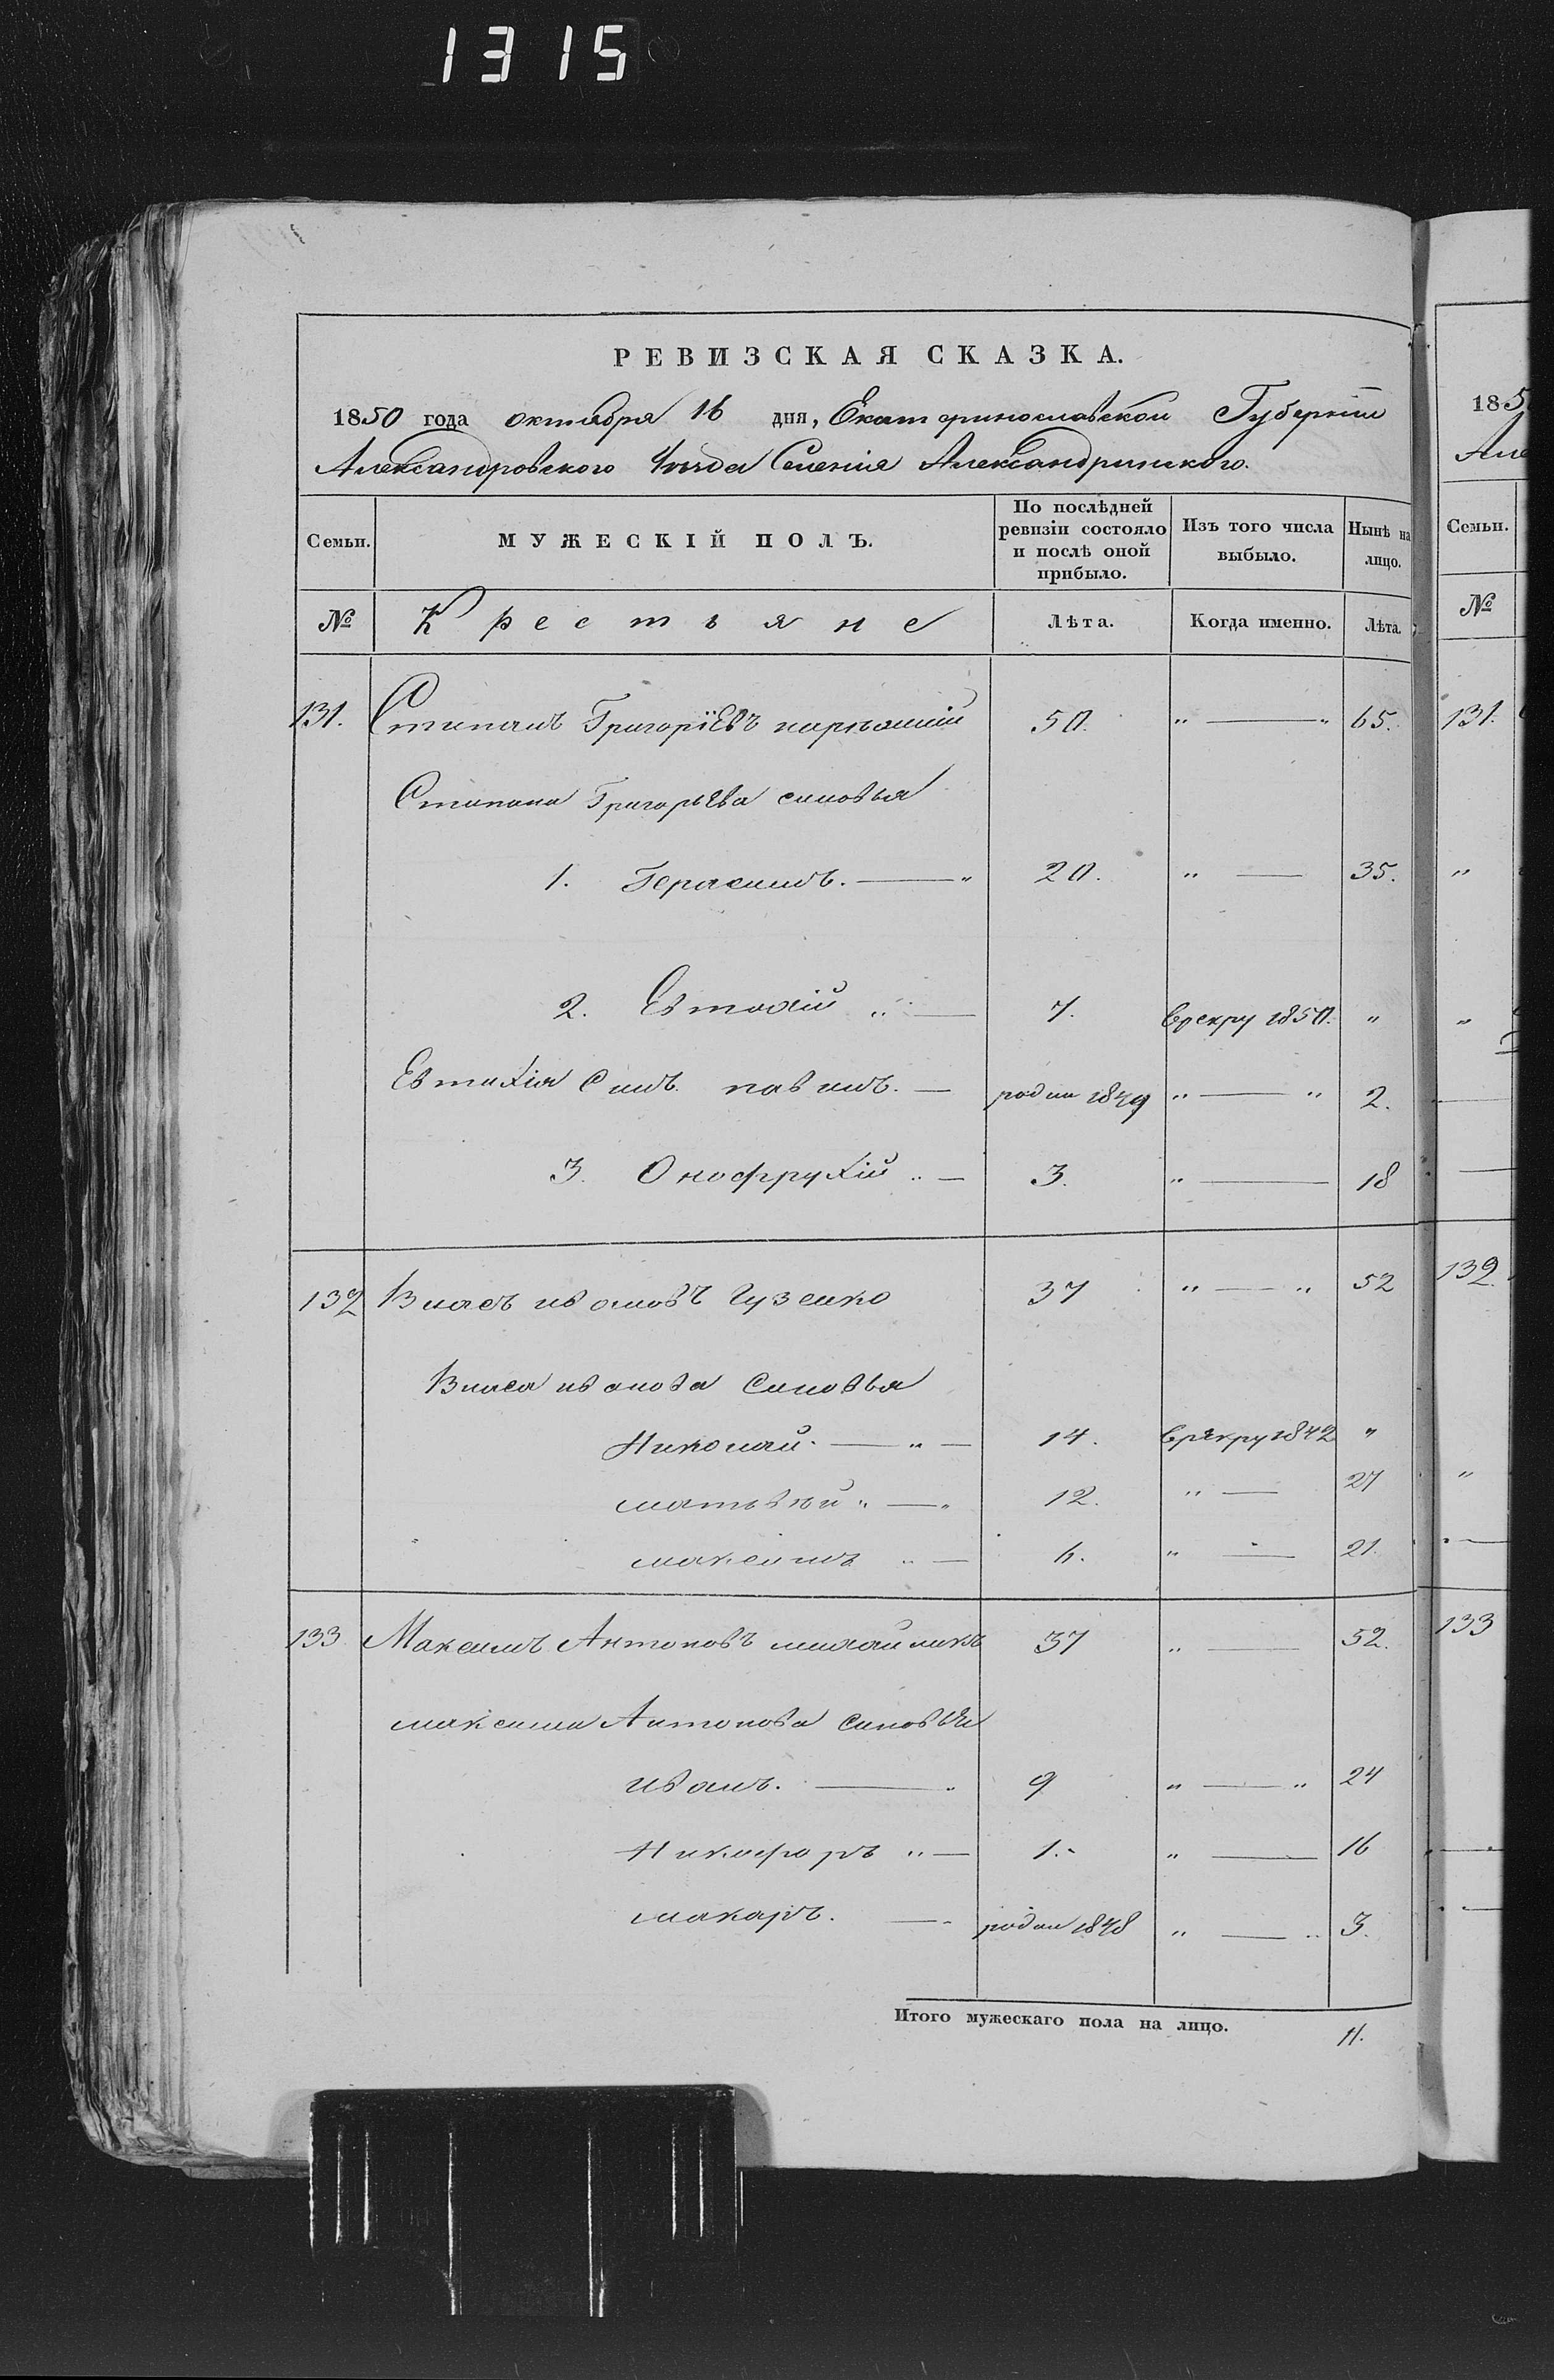 1315
РЕВИЗСКАЯ СКАЗКА.
1850 года октября 16 дня, Екатеринославской Губерніи
Александровского Уѣзда Селенія Александринского.
Семьи. МУЖЕСКІЙ ПОЛЪ. По послѣдней ревизіи состояло и послѣ оной прибыло. Изъ того числа выбыло. Нынѣ на лицо.
№ Крестьяне Лѣта. Когда именно. Лѣта.
131. Стипанъ Григоріевъ 50. " — " 65.
Стипана Григорьева синовья
1. Герасимъ. — " 20. " — 35.
2. Евтохій " — 7. Врекру 1850. "
Евтихія Синъ павилъ. — родил 1849 " — " 2.
3. Онофрухій " — 3. " — 18
132 Власъ ивановъ Гузенко 37 " — " 52
Власа иванова Синовья
Николай. — " — 14. Врекру 1842 "
матьвѣй " — " 12. " — 27
максимъ " — 6. " — 21.
133 Максимъ Антоновъ 37 " — 52.
максима Антонова Синовья
иванъ. — " 9 " — " 24
Никифоръ " — 1. " — 16
макаръ. — родил 1848 " — " 3.
Итого мужескаго пола на лицо. 11.
185
Але
Семьи.
№
131.
"
"
132.
"
133